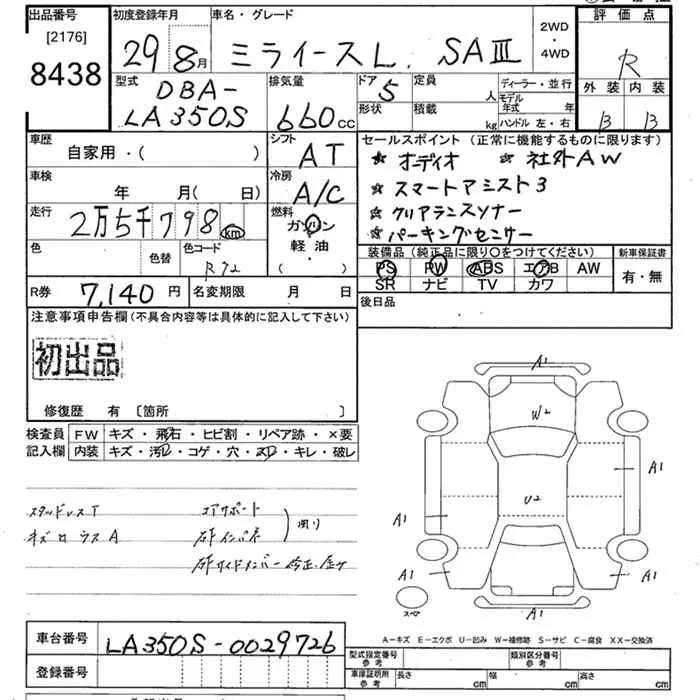 出品番号
[2176]
8438
初度登録年月
29 8月
車名・グレード
ミライースL. SAⅢ
2WD
・
4WD
評価点
R
外装 内装
B B
型式
DBA-
LA350S
排気量
660cc
ドア 5
定員 人
形状
積載 kg
ディーラー・並行
モデル年式 年
ハンドル 左・右
車歴
自家用・( )
シフト
AT
車検
年 月( 日)
冷房
A/C
走行
2万5千798km
燃料
ガソリン
軽油・
( )
色
色替
色コード
R72
R券 7,140円
名変期限 月 日
セールスポイント(正常に機能するものに限ります)
★オーディオ ★社外AW
★スマートアシスト3
★クリアランスソナー
★パーキングセンサー
装備品(純正品に限り○をつけてください)
PS PW ABS エアB AW
SR ナビ TV カワ
新車保証書
有・無
後日品
注意事項申告欄(不具合内容等は具体的に記入して下さい)
初出品
修復歴 有 〔箇所 〕
検査員記入欄
FW キズ・飛石・ヒビ割・リペア跡・×要
内装 キズ・汚れ・コゲ・穴・スレ・キレ・破レ
スタッドレスT
キズ
コアサポート
A1
W2
A1
U2
A1
A1
A1
A1
スペア
A-キズ E-エクボ U-凹み W-補修跡 S-サビ C-腐食 XX-交換済
車台番号 LA350S-0029726
登録番号
型式指定番号 参考
類別区分番号 参考
車庫証明所 参考
長さ cm 幅 cm 高さ cm